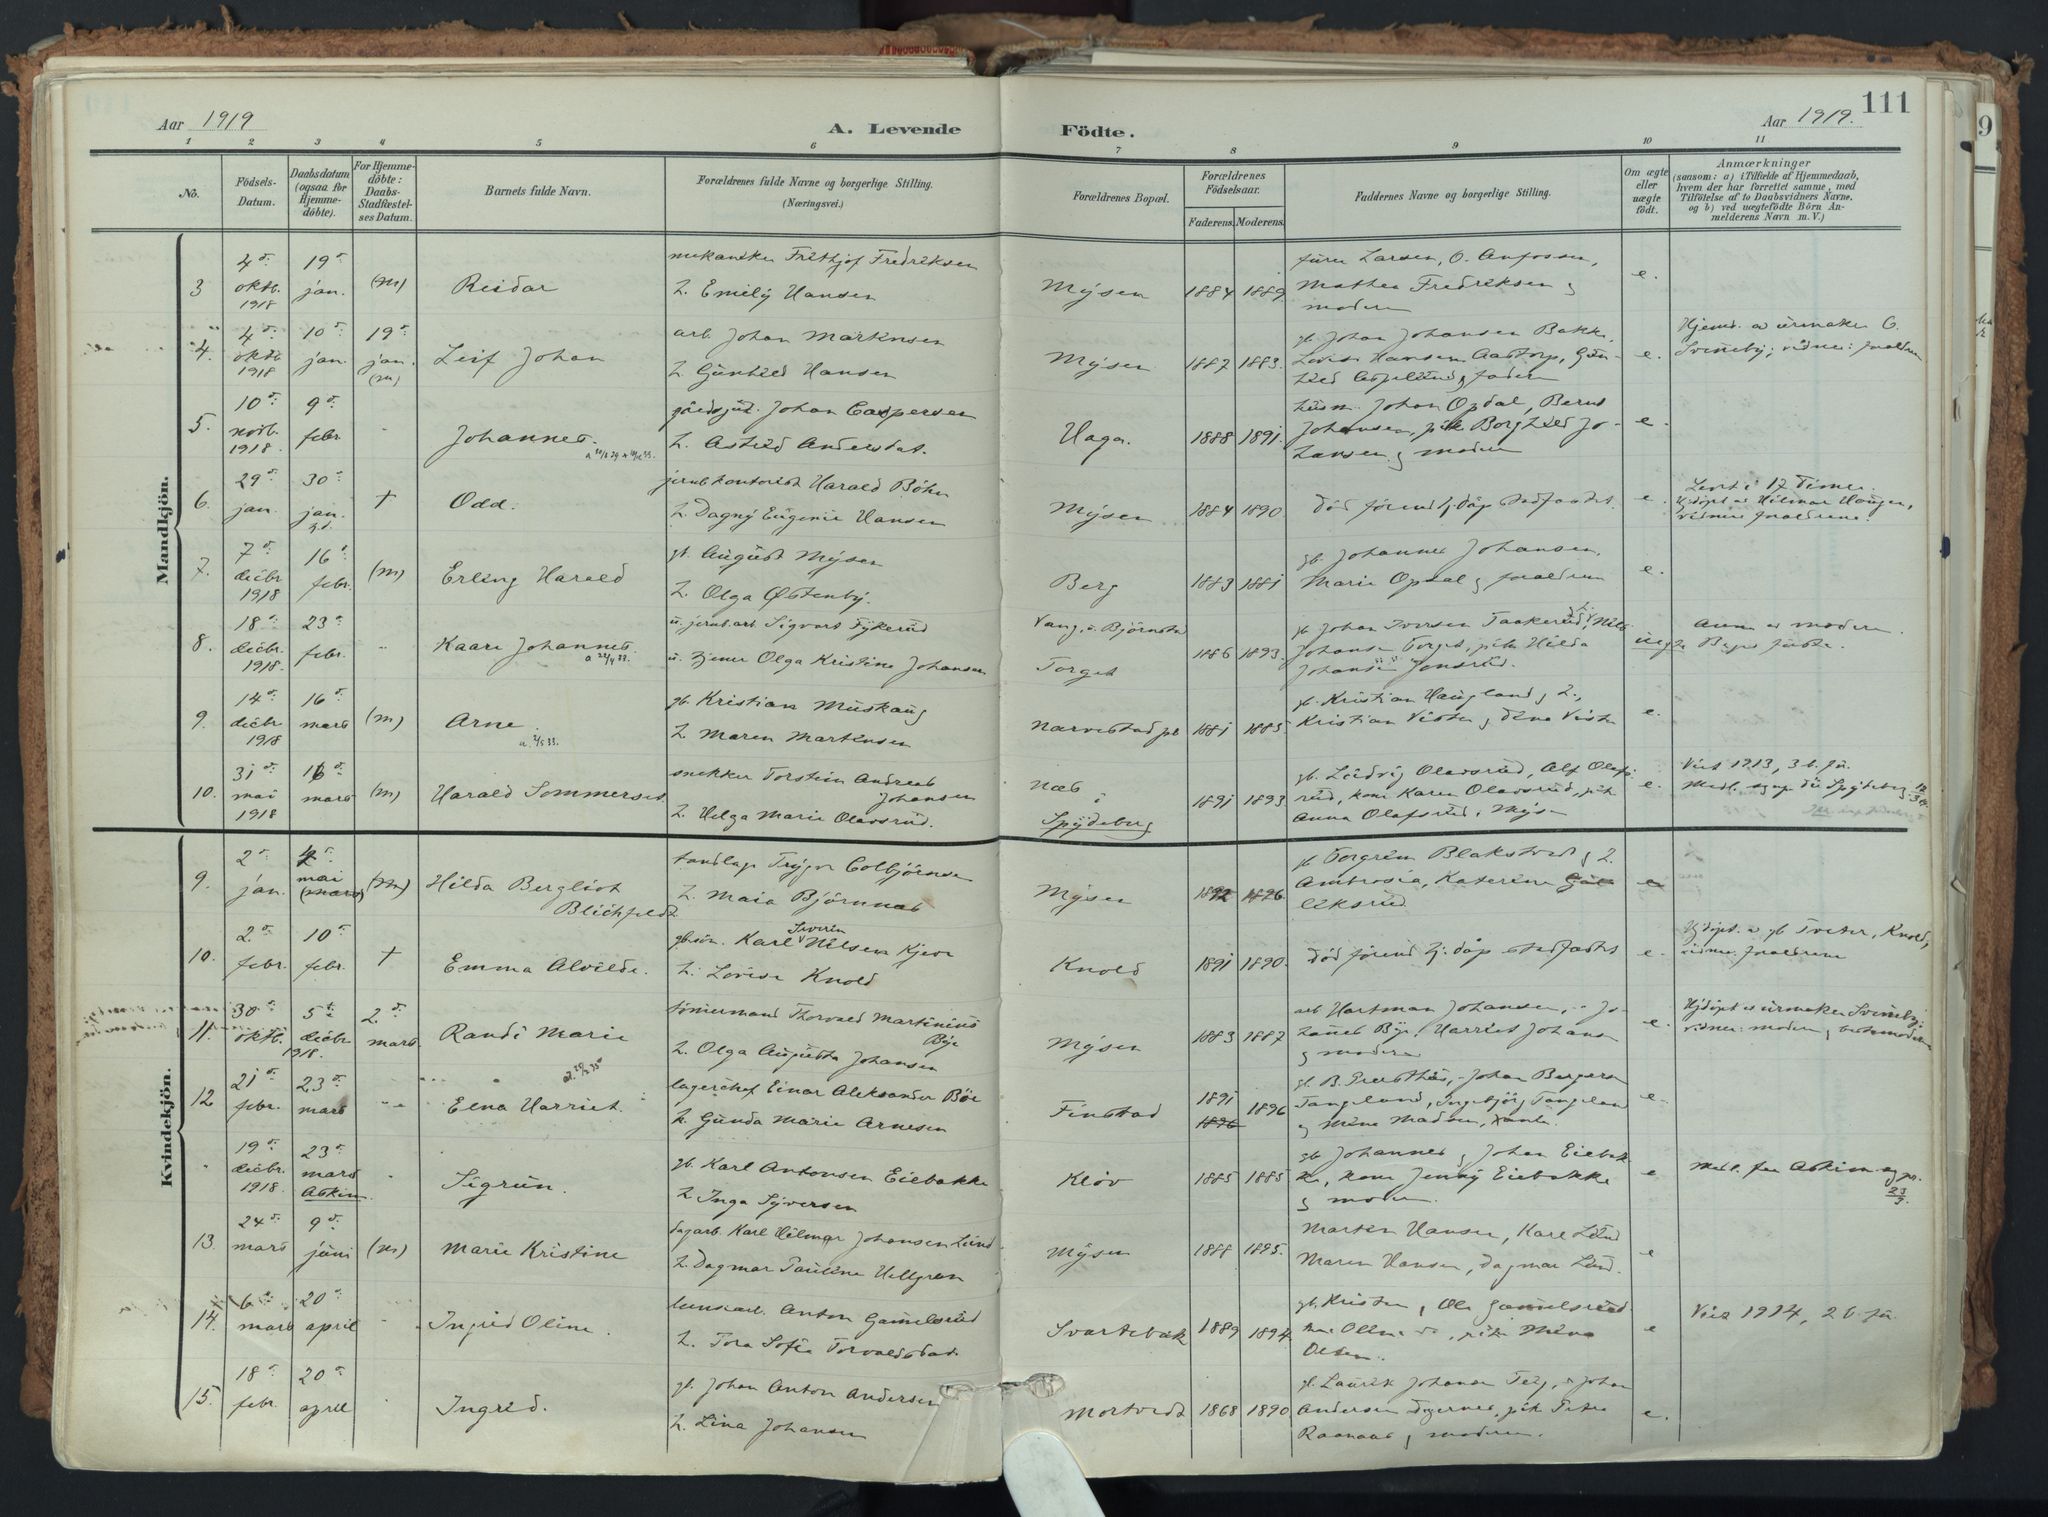 Aar 1919
A. Levende Födte.
Aar 1919.
111
1 2 3 4 5 6 7 8 9 10 11
No.
Födsels-Datum.
Daabsdatum (ogsaa for Hjemmedöbte).
For Hjemmedöbte: Daabs-Stadfæstelses Datum.
Barnets fulde Navn.
Forældrenes fulde Navne og borgerlige Stilling.
(Næringsvei.)
Forældrenes Bopæl.
Forældrenes Födselsaar.
Faderens. Moderens.
Faddernes Navne og borgerlige Stilling.
Om ægte eller uægte födt.
Anmærkninger
(saasom: a) i Tilfælde af Hjemmedaab, hvem der har forrettet samme, med Tilföielse af to Daabsvidners Navne, og b) ved uægtefödte Börn Anmelderens Navn m. V.)
Mandkjön.
3 4de oktb. 1918 19de jan. (m) Reidar
Frithjof Fredriksen
h. Emily Hansen
Mysen 1884 1889
Larsen, O.
Mathea Fredriksen og
moderen
e.
4. 4de oktb 1918 10de jan. 19de jan. (m) Leif Johan
arb. Johan Markusen
h. Gunhild Hansen
Mysen 1887 1883.
gb. Johan Johansen Bakke,
Lovise Hansen Aastorp,
og faderen
e.
Hjemd. av urmaker
Svineby; vidner: foraldrene
5. 10de novb. 1918. 9de febr Johannes.
Johan Caspersen
h. Astrid Andersdat.
Haga. 1888 1891.
husm. Johan Opdal, Bernt
Johansen, pike Borghild Jo-
hansen og moderen
e.
6. 29de jan. 30de jan. † Odd.
Harald Böhn
h. Dagny Eugenie Hansen
Mysen 1884 1890.
död förend hj: dåp stadfæstet.
e.
Levet i 17 Timer.
Hjdöpt av Hilmar Haugen,
vidner foraldrene.
7. 7de decbr 1918 16de febr. (m) Erling Harald
gb. August Mysen
h. Olga Østenby.
Berg 1883 1881
gb. Johannes Johansen,
Marie Opdal og foraldrene
e.
8. 18de decbr. 1918. 23de febr. Kaare Johannes.
u. jernb.arb. Sigvart Fykerud
u. tjener Olga Kristine Johansen
Torget 1886 1893.
gb. Johan Iversen
Johansen Torget, pike Hilda
uegte
Anm. av moderen.
9. 14de decbr 1918 16de mars (m) Arne.
gb. Kristian Muskaug
h. Maren Martinsen
1881 1885.
gb. Kristian Haugland og h.,
Kristian
e.
10. 31de mai 1918 16de mars (m) Harald Sommerset
snekker Torstein Andreas
Johansen
h. Helga Marie Olavsrud.
Næs i
Spydeberg
1891 1893
gb. Ludvig Olavsrud, Alf Olafs-
rud, kone Karen Olavsrud, pike
Anna Olafsrud, Mysen
e.
Viet 1913, 3 b. för.
Kvindekjön.
9. 2de jan. mai (mars) (m) Hilda Bergliot
Blichfeldt
tandlæge Trygve Colbjörnsen
h. Maia Björnnæs
Mysen 1892 1896
gb Torgrim Blakstved og h.
Ambrosia, Katerine
10. 2de febr. 10de febr. † Emma Alvilde.
gbsön. Karl Severin Nilsen Kjeve
h. Lovise Knold
Knold 1891 1890.
död förend hj: dåp stadfæstet
e.
Hjdöpt. av gb Tveter, Knold,
vidner foraldrene
11. 30te oktb. 5te decbr. 1918. 2den mars. Randi Marie
tömermand Thorvald Martinius
Bye
h. Olga Augusta Johansen
Mysen 1883 1887
arb Hartman Johansen,
Bye, Harriet Johansen
og moderen
e.
Hjdöpt av urmaker Svineby;
vidner: moderen og bestemoderen
12 21de febr. 23de mars Elna Harriet.
lagerchef Einar Aleksander Böe
h. Gunda Marie Arnesen
Finstad 1891 1896 1896
Johan Bergersen
Tangeland, Ingebjörg Tangeland
og Mina Madsen, tante.
e.
19de decbr. 1918. 23de mars Askim. Sigrun.
gb. Karl Antonsen Eiebakke
h. Inga Syversen
Klöv 1885 1885
gb Johannes og Johan Eiebak-
ke, kone Jenny Eiebakke
og moderen.
e
Medl. fra Askim
13. 24de mars 9de juni (m) Marie Kristine
dagarb. Karl Hilmar Johansen Lund
h. Dagmar Pauline Hellgren
Mysen 1888 1895.
Martin Hansen, Karl Lund
Maren Hansen, Dagmar Lund.
e
14. 6te mars 20de april Ingrid Oline.
Anton Gamelsrud
h. Tora Sofie Torvaldsdat.
Svartebæk 1889 1894.
gb. Kristen og Ole Gamelsrud
pike Mina
Olsen.
e
Viet 1914, 2 b. för.
15. 18de febr. 20de april Ingrid.
gb. Johan Anton Andersen
h. Lina Johansen
Mortvedt 1868 1890.
gb. Laurik Johansen Teig, Johan
Andersen
Raanaas og moderen.
e.